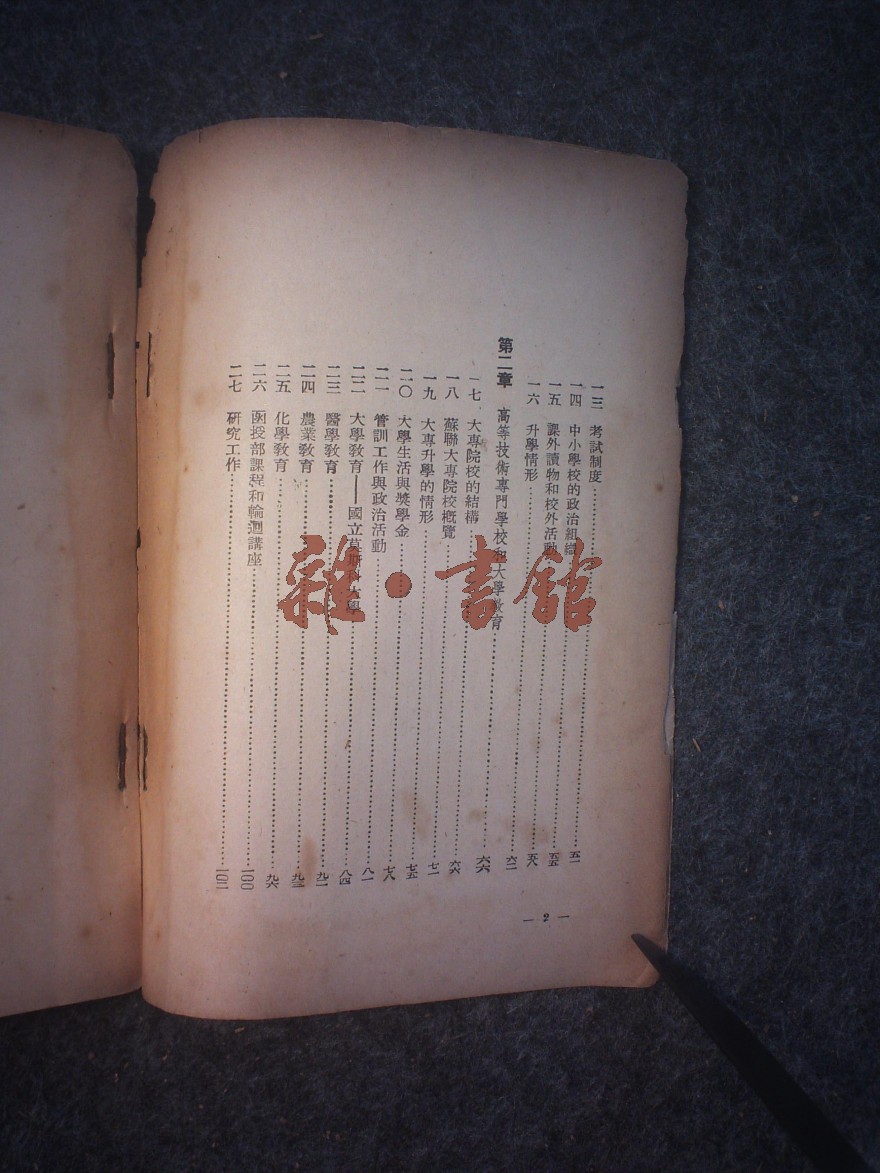 一三 考試制度……五一
一四 中小學校的政治組織……五五
一五 課外讀物和校外活動……五八
一六 升學情形……六二
第二章 高等技術專門學校和大學教育……六六
一七 大專院校的結構……六六
一八 蘇聯大專院校概覽……七一
一九 大專升學的情形……七五
二〇 大學生活與獎學金……七八
二一 管訓工作與政治活動……八一
二二 大學教育——國立莫斯科大學……八四
二三 醫學教育……九一
二四 農業教育……九三
二五 化學教育……九六
二六 函授部課程和輪迴講座……一〇〇
二七 研究工作……一〇三
— 2 —
雜·書館